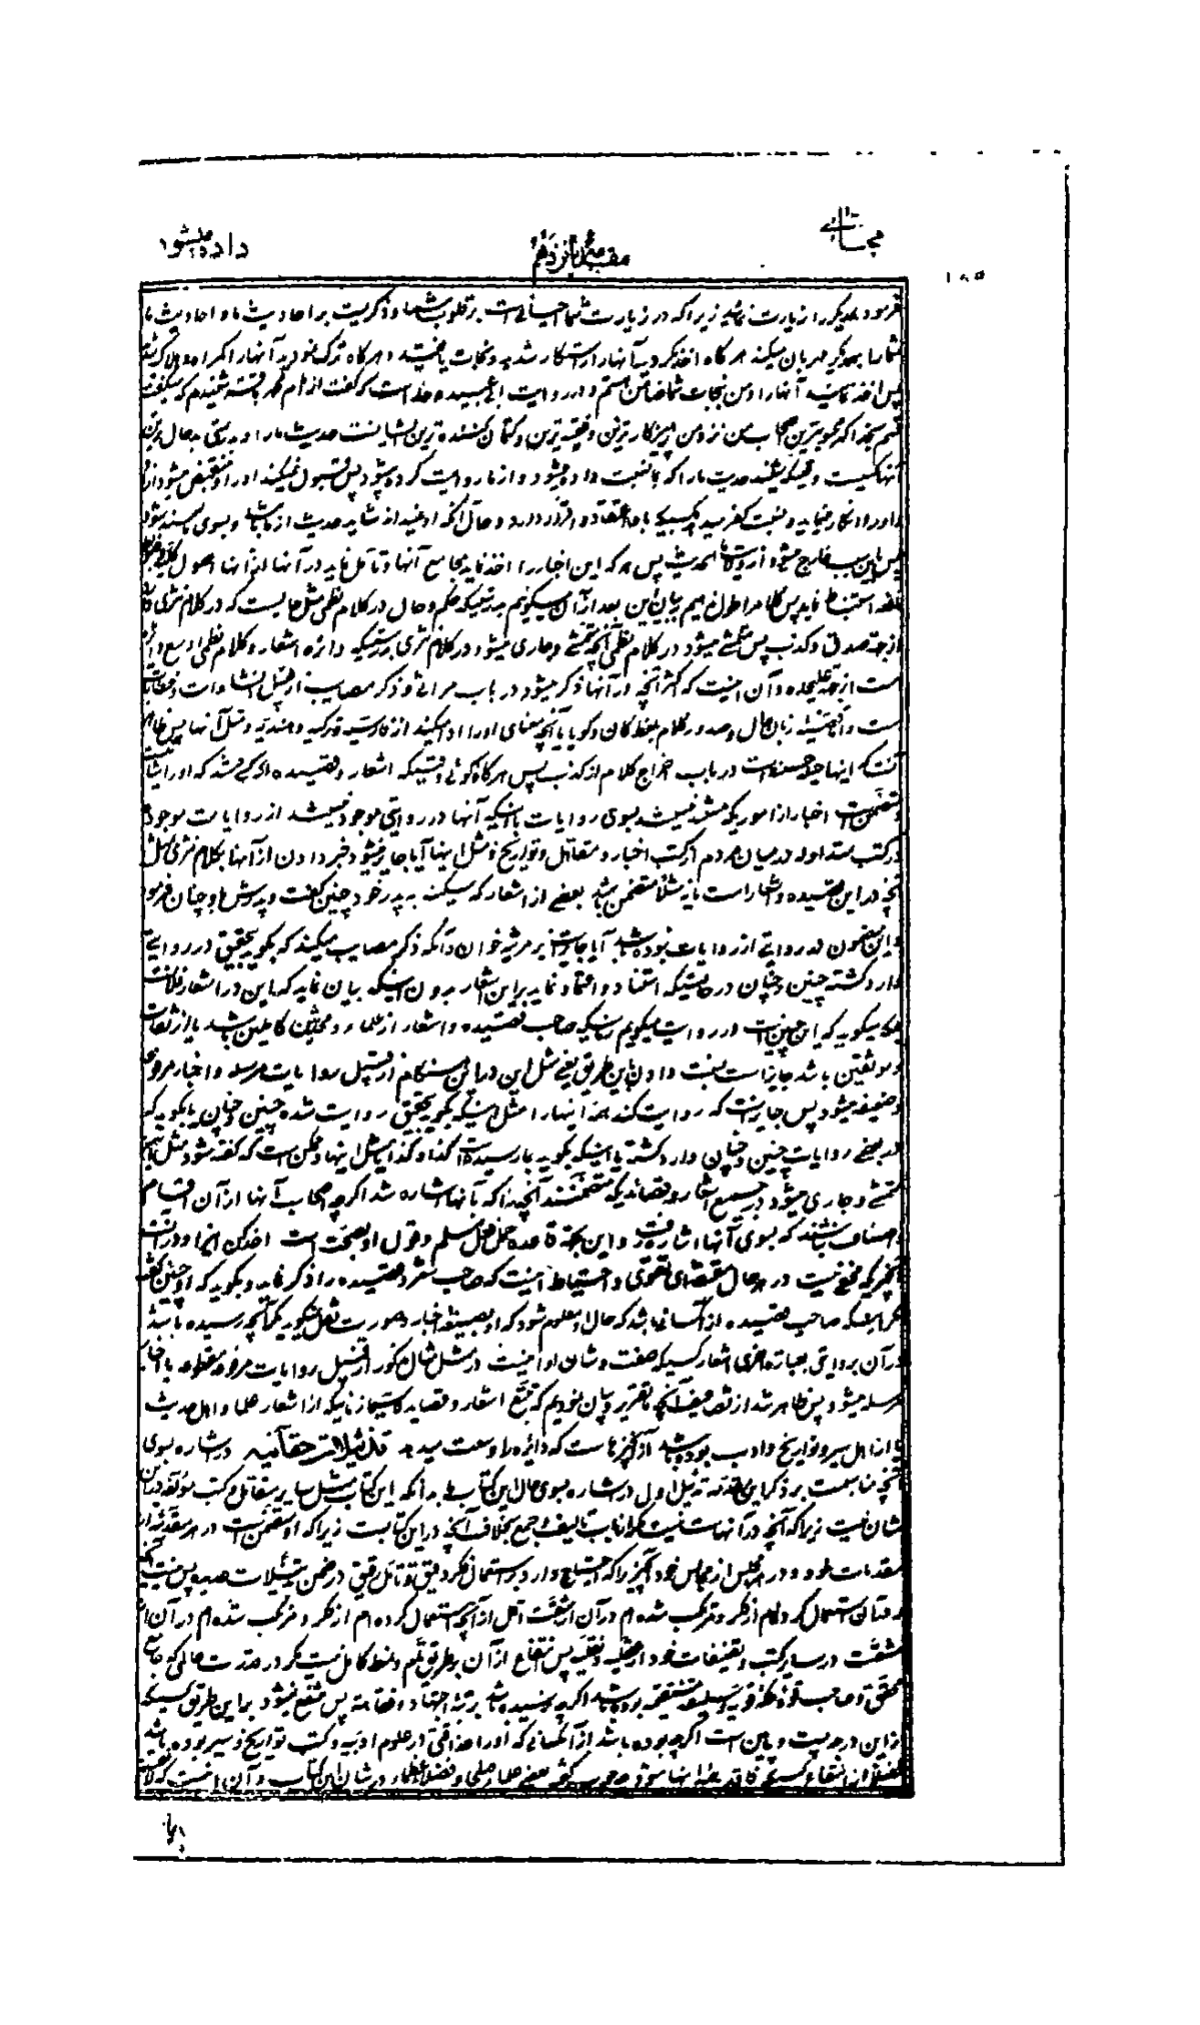 داده میشود
مقدمه پانزدهم
۱۸۵
فرمود یکدیگر را زیارت نمائید زیرا که در زیارت شما احیائی است بر قلوب شما و ذکریست بر احادیث ما و احادیث ما
شما را بهمدیگر مهربان میکند هرگاه اخذ کردید آنها را رستگار شدید و نجات یافتید و هرگاه ترک نمودید آنها را گمراه و هلاک شدید
پس اخذ نمائید آنها را و من بنجات شما ضامن هستم و در روایت ابی عبیده حذاء است که گفت از امام محمد باقر شنیدم که میگفت
قسم بخدا که محبوبترین اصحاب من نزد من پرهیزکارترین و فقیه ترین و کتمان کننده ترین ایشانست حدیث ما را و بدرستی بدحال ترین
آنها کسیست وقتیکه بشنود حدیث ما را که بما نسبت داده میشود و از ما روایت کرده میشود پس قبول نمیکند او را و منقبض میشود از آن
و او را انکار مینماید و نسبت کفر میدهد بکسیکه باو اعتقاد و اقرار دارد و حال آنکه او نمیداند شاید حدیث از ما باشد و بسوی ما سند شود
پس باین سبب خارج میشود از ولایت ما الحدیث پس هر که این اخبار را اخذ نماید مجامع آنها و تأمل نماید در آنها از آنها اصول کلیه
استنباط نماید پس کلام را طول ندهیم ببیان این بعد از آن میگوئیم بدرستیکه حکم و حال در کلام نظمی مثل حالیست که در کلام نثری
از جهة صدق و کذب پس متمشی میشود در کلام نظمی آنچه متمشی و جاری میشود در کلام نثری بدرستیکه دائره اشعار و کلام نظمی اوسع
است از جهة علیحده و آن اینست که اکثر آنچه در آنها ذکر میشود در باب مراثی و ذکر مصایب از قبیل انشاءات
است زبان حال و صدور کلام بلفظ کان و گویا یا آنچه معنای او را ادا میکند از فارسیه و ترکیه و هندیه و مثل آنها پس
اینها در باب اخراج کلام از کذب پس هرگاه گوئی وقتیکه اشعار و قصیده
متضمن است اخبار از اموریکه مستند نمیشد بسوی روایات بآنکه آنها در روایتی موجود نمیشد از روایات موجوده
در کتب متداوله در میان مردم از کتب اخبار و مقاتل و تواریخ و مثل اینها آیا جایز میشود خبر دادن از آنها بکلام نثری
آنچه در این قصیده و اشعار است یا نه مثلاً متضمن باشد بعضی از اشعار که سکینه به پدر خود چنین گفت و پدرش باو چنان فرمود
و این مضمون در روایتی از روایات نبوده باشد آیا جایز است بر مرثیه خوان وقتیکه ذکر مصایب میکند که بگوید بتحقیق در روایتی
وارد گشته چنین و چنان در حالتیکه استناد و اعتماد نماید بر این اشعار بدون اینکه بیان نماید که این در اشعار فلانست
بلکه میگوید که این چنین است در روایت میگویم زمانیکه صاحب قصیده و اشعار از علماء و محدثین کاملین باشد یا از ثقات
و موثقین باشد جایز است نسبت دادن باین طریق یعنی مثل این در این هنگام از قبیل روایات مرسله و اخبار مرفوعه
و ضعیفه میشود پس جایز است که روایت کند هم اینها را مثل اینکه بگوید بتحقیق روایت شده چنین و چنان یا بگوید که
در بعضی روایات چنین و چنان وارد گشته یا اینکه بگوید بما رسیده است کذا و کذا یا مثل اینها و ممکن است که گفته شود مثل این
متمشی و جاری میشود در جمیع اشعار و قصائدیکه متضمنند آنچه را که بآنها اشاره شد اگرچه اصحاب آنها از آن اقسام
و اصناف نباشند که بسوی آنها اشاره رفت و این بجهة قاعده حمل فعل مسلم و قول او بصحت است اخذ کن اینرا و دور نیست
مخفی نیست در هر حال مقتضای تقوی و احتیاط اینست که صاحب شعر و قصیده را ذکر نماید و بگوید که او چنین گفت
مگر اینکه صاحب قصیده از کسانی باشد که حال او معلوم شود که او بصیغه اخبار و صورت نقل نمیگوید مگر آنچه رسیده باشد
در آن بروایتی بعبارة اخری اشعار کسیکه صفت و شأن او اینست در مثل مثال مذکور از قبیل روایات مرفوعه و مقطوعه یا اخبار
مرسله میشود پس ظاهر شد از تضاعیف آنچه تقریر و بیان نمودیم که تتبع اشعار و قصاید لاسیما زمانیکه از اشعار علما و اهل حدیث
یا از اهل سیر و تواریخ و ادب بوده باشد از آنچیزهاست که دائره را وسعت میدهد تذییلات حقانیه در اشاره بسوی
آنچه مناسبست بر ذکر این مقدمه تذییل اول در اشاره بسوی حال این کتاب بدانکه این کتاب مثل سایر مقاتل و کتب مؤلفه در این
شأن نیست زیرا که آنچه در آنهاست نیست مگر از باب تألیف و جمع بخلاف آنچه در این کتابست زیرا که او متضمن است در هر مقدمه از
مقدمات خود و در هر مجلس از مجالس خود آنچیز را که احتیاج دارد به استعمال فکر دقیق و تأمل رقیق در ضمن تذییلات عدیده پس نیست
استعمال کرده ام از فکر و مرتکب شده ام در آن از مشقت اقل از آنچه استعمال کرده ام از فکر و مرتکب شده ام در آن از
مشقت در سایر کتب و تصنیفات خود از عقلیه و نقلیه پس انتفاع از آن بطریق اتم و نمط کامل نیست مگر در قدرت عالمی که جامع
محقق و صاحب قوة فکر قویه و سلیقه مستقیمه بوده باشد اگرچه نرسیده باشد برتبه اجتهاد و فقاهت پس منتفع نمیشود بر این طریق کسیکه
از این درجه پست و پائین است اگرچه بوده باشد از آن کسانی که او را حذاقتی در علوم ادبیه و کتب تواریخ و سیر بوده باشد
بعضی علماء و فضلاء در شأن این کتاب و آن اینست که